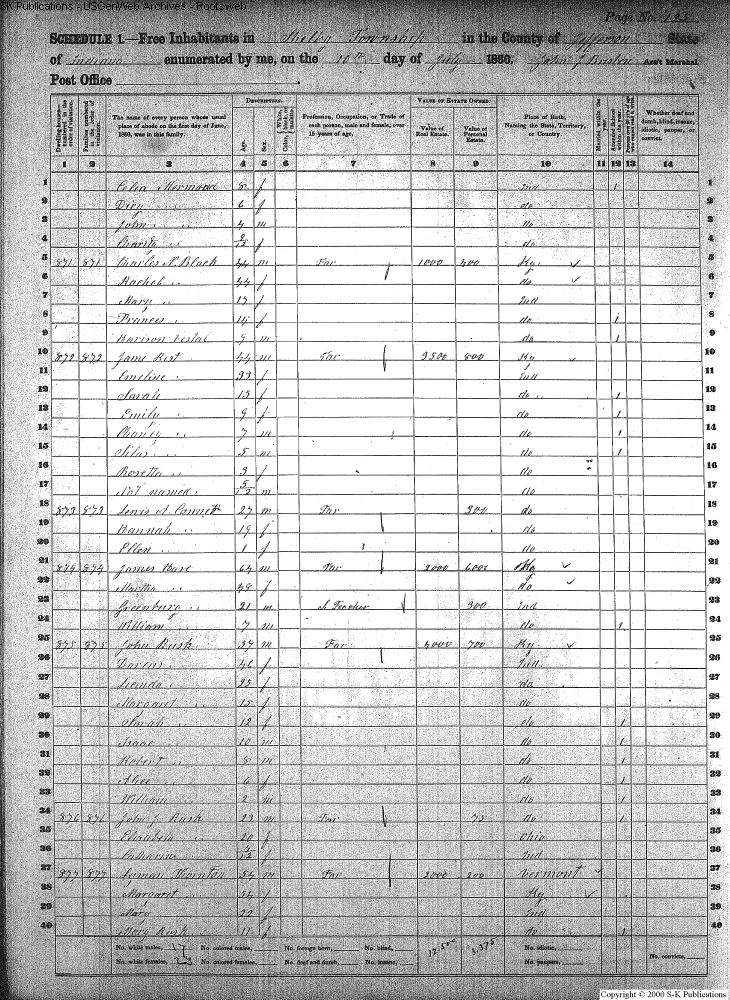 SK Publications - USGenWeb Archives - Rootsweb
Page No. 125
SCHEDULE 1.—Free Inhabitants in Shelby Township in the County of Jefferson State
of Indiana enumerated by me, on the 10th day of July 1860. John J Ass't Marshal
Post Office
DESCRIPTION. VALUE OF ESTATE OWNED.
Dwelling-houses—numbered in the order of visitation. Families numbered in the order of visitation. The name of every person whose usual place of abode on the first day of June, 1860, was in this family. Age. Sex. Color, White, black, or mulatto. Profession, Occupation, or Trade of each person, male and female, over 15 years of age. Value of Real Estate. Value of Personal Estate. Place of Birth, Naming the State, Territory, or Country. Married within the year. Attended School within the year. Whether deaf and dumb, blind, insane, idiotic, pauper, or convict.
1 2 3 4 5 6 7 8 9 10 11 12 13 14
1 Celia 8 f Ind 1 1
2 6 f do 2
3 John " 4 m do 3
4 Charity " /12 f do 4
5 871 871 Charles N. Black 44 m Far 1000 400 Ky 5
6 Rachel " 44 f do 6
7 Mary " 17 f Ind 7
8 Frances " 14 f do 1 8
9 Harrison 9 m do 1 9
10 872 872 44 m Far 3500 800 Ky 10
11 Emeline " 33 f Ind 11
12 Sarah " 13 f do 1 12
13 Emily " 9 f do 1 13
14 " 7 m do 1 14
15 Silas " 5 m do 1 15
16 Rosetta " 3 f do 16
17 Not named " 5/12 m do 17
18 873 873 Lewis A. 27 m Far 300 do 18
19 Hannah " 19 f do 19
20 Ellen " 1 f do 20
21 874 874 James 64 m Far 2000 600 Ky 21
22 Martha " 48 f do 22
23 Greenbury " 21 m S. Teacher 300 Ind 23
24 William " 7 m do 1 24
25 875 875 John Bush m Far 4000 700 Ky 25
26 " 46 f Ind 26
27 " 23 f do 27
28 Margaret " 15 f do 28
29 Sarah " 12 f do 1 29
30 Isaac " 10 m do 1 30
31 Robert " 8 m do 1 31
32 Alice " 6 f do 1 32
33 William " 2 m do 33
34 876 876 John J. Bush 23 m Far 75 do 34
35 Elizabeth " 20 f Ohio 35
36 Catharine " /12 f Ind 36
37 877 877 Lyman Thornton 54 m Far 2000 200 Vermont 37
38 Margaret " 54 f Ky 38
39 Mary " 22 f Ind 39
40 Mary Bush 11 f do 1 40
No. white males, 17 No. colored males, No. foreign born, No. blind, 12.500 3.375 No. idiotic,
No. white females, 23 No. colored females, No. deaf and dumb, No. insane, No. paupers, No. convicts,
Copyright © 2000 S-K Publications